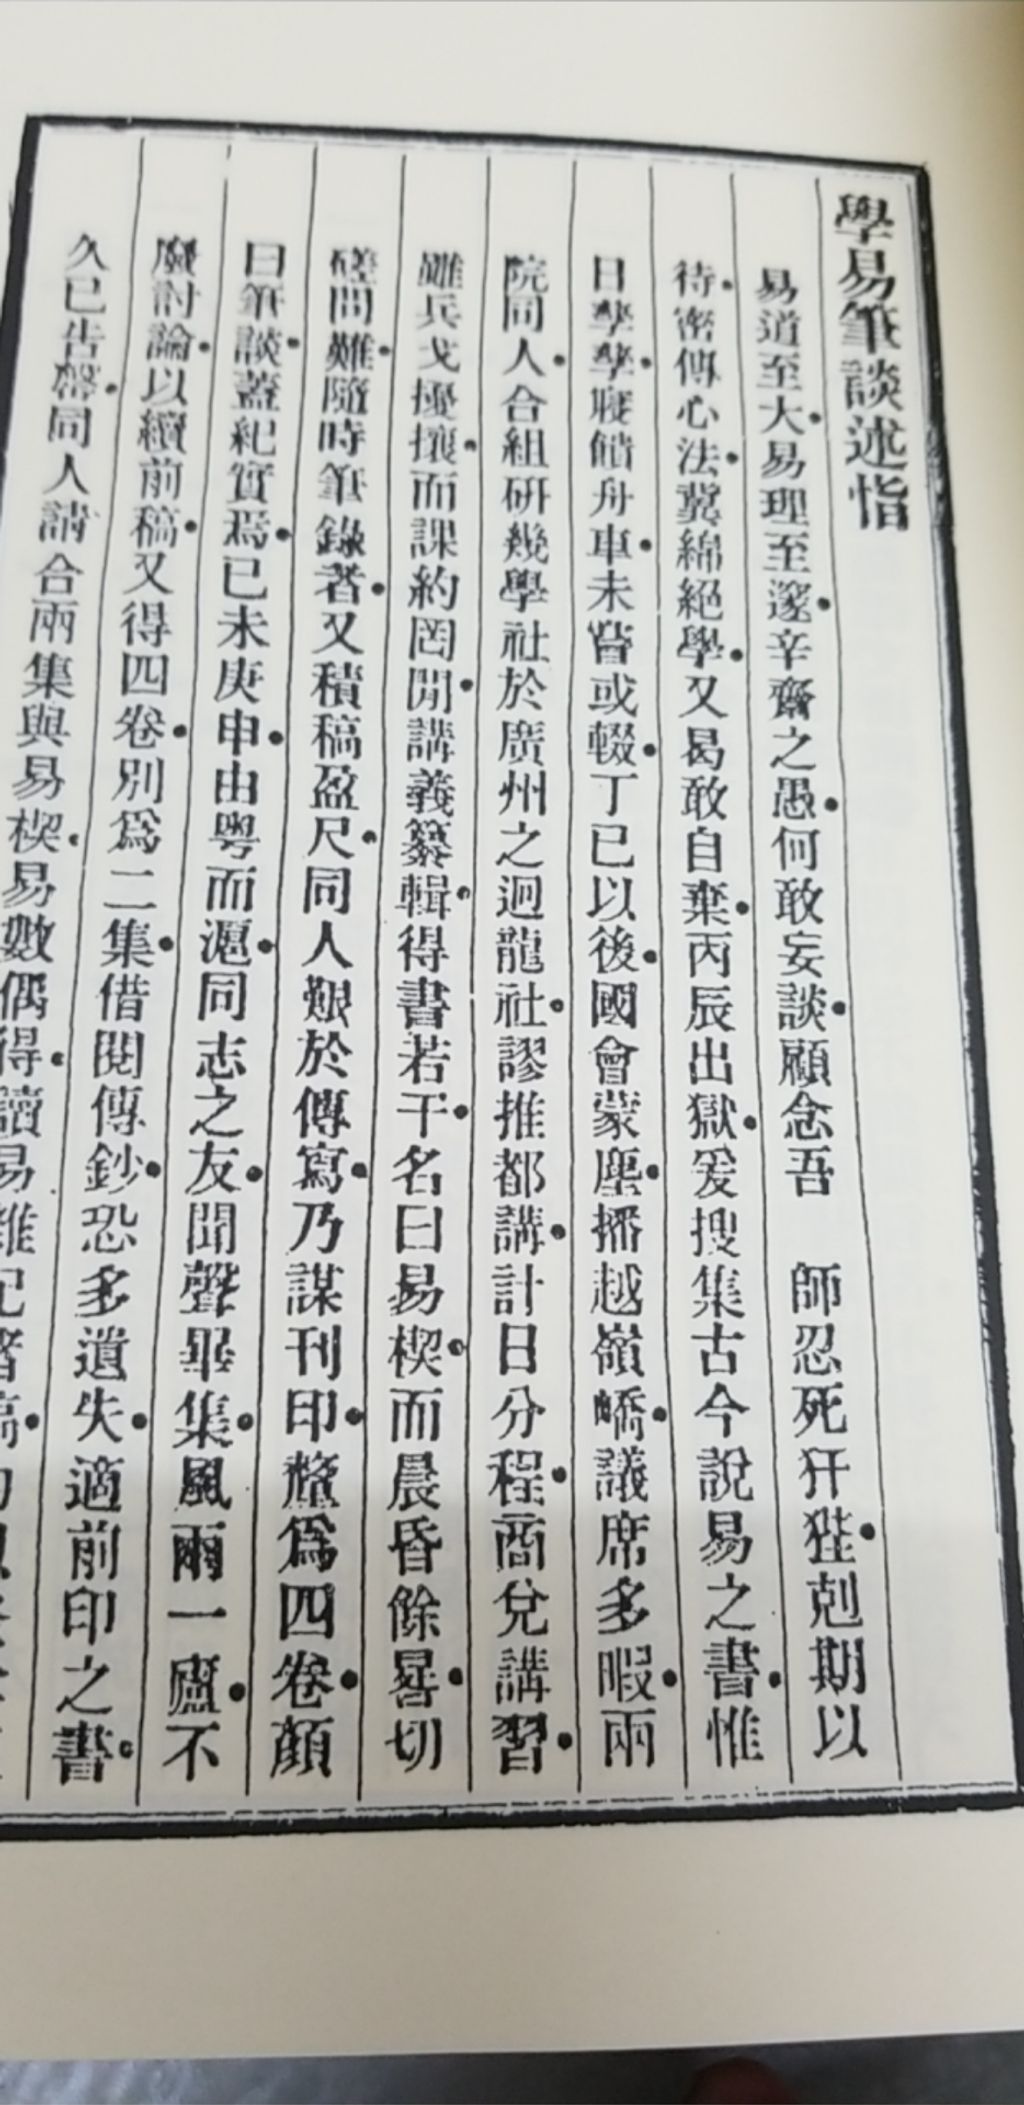 學易筆談述恉
易道至大•易理至邃•辛齋之愚•何敢妄談•顧念吾　師忍死犴狴•剋期以
待•密傳心法•冀綿絕學•又曷敢自棄•丙辰出獄•爰搜集古今說易之書•惟
日孳孳•寢饋舟車•未嘗或輟•丁巳以後•國會蒙塵•播越嶺嶠•議席多暇•兩
院同人•合組研幾學社於廣州之迴龍社•謬推都講•計日分程•商兌講習•
雖兵戈擾攘•而課約罔閒•講義纂輯•得書若干•名曰易楔•而晨昏餘晷•切
磋問難•隨時筆錄者•又積稿盈尺•同人艱於傳寫•乃謀刊印•釐爲四卷•顏
曰筆談•蓋紀實焉•已未庚申•由粵而滬•同志之友•聞聲畢集•風雨一廬•不
廢討論•以續前稿•又得四卷•別爲二集•借閱傳鈔•恐多遺失•適前印之書•
久已告罄•同人請合兩集與易楔•易數偶得•讀易雜記諸稿•